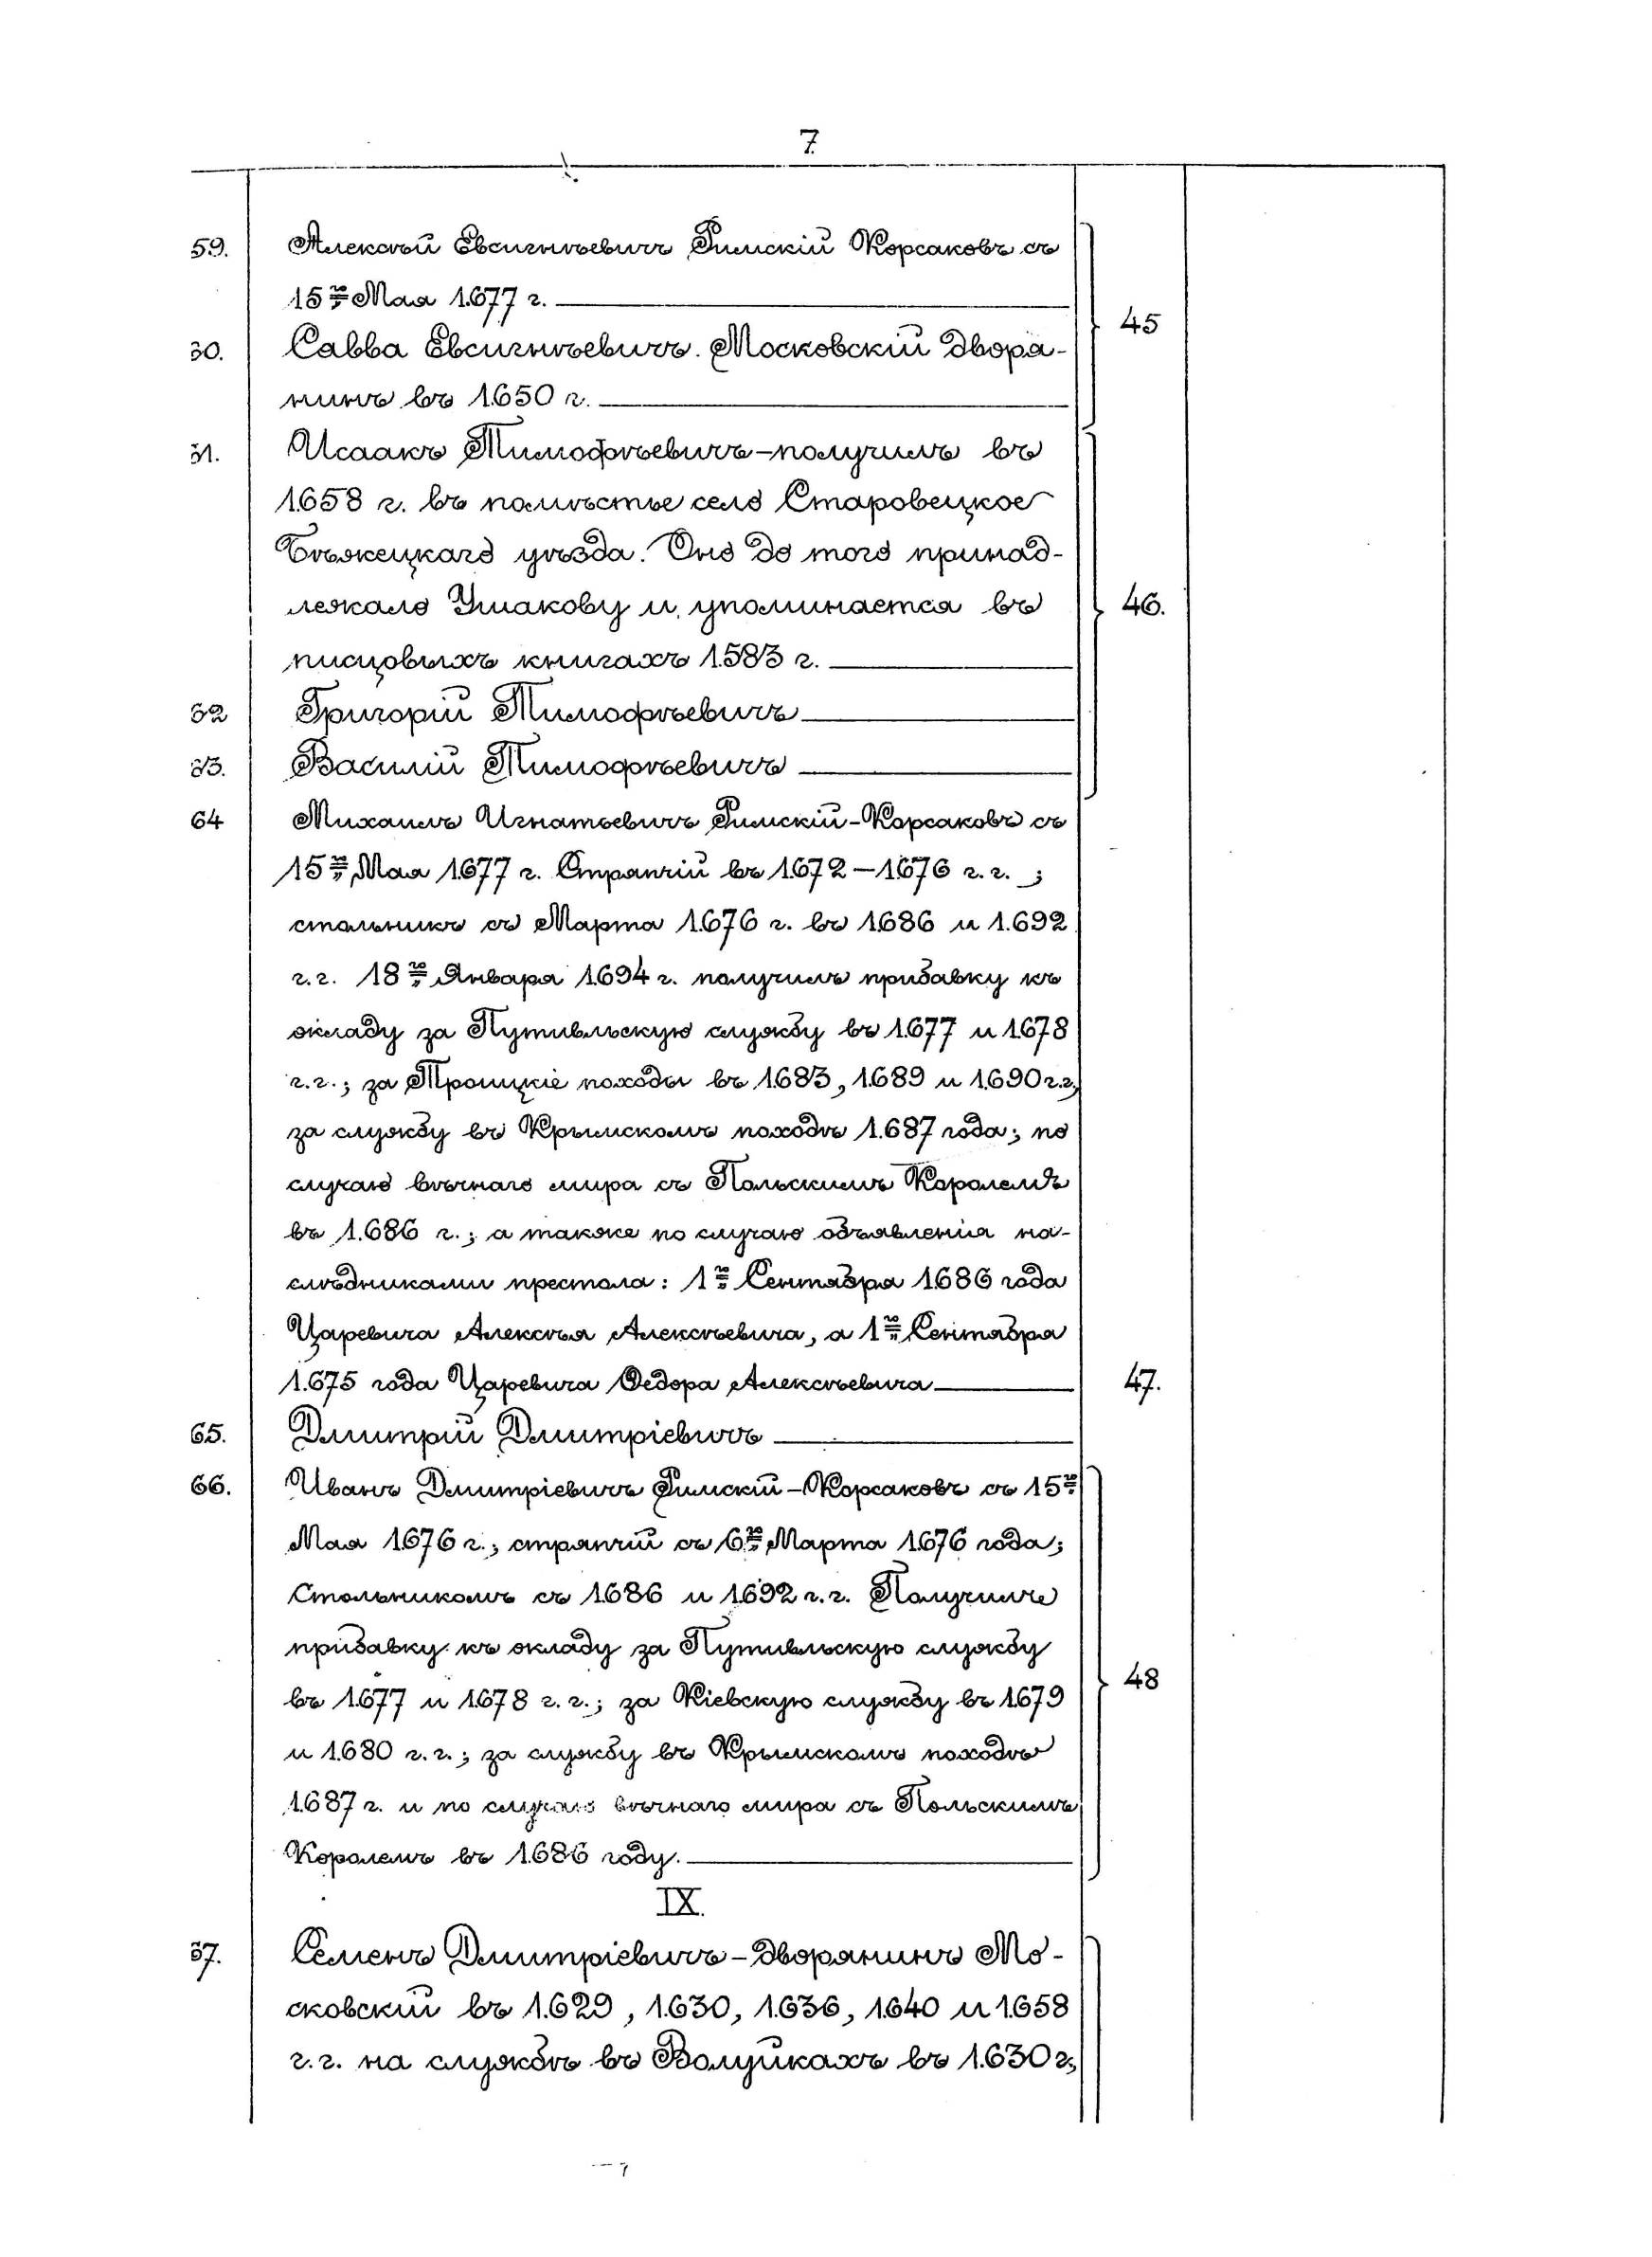 7.
59. Алексѣй Евсигнѣевичъ Римскій Корсаковъ съ
15го Мая 1677 г.
45
60. Савва Евсигнѣевичъ. Московскій дворя-
нинъ въ 1650 г.
61. Исаакъ Тимофѣевичъ - получилъ въ
1658 г. въ помѣстье село Старовецкое
Бѣжецкаго уѣзда. Оно до того принад-
лежало Ушакову и упоминается въ
46.
писцовыхъ книгахъ 1583 г.
62 Григорій Тимофѣевичъ
63. Василій Тимофѣевичъ
64 Михаилъ Игнатьевичъ Римскій-Корсаковъ съ
15го Мая 1677 г. Стряпчій въ 1672-1676 г.г. ;
стольникъ съ Марта 1676 г. въ 1686 и 1692
г.г. 18го Января 1694 г. получилъ прибавку къ
окладу за Путивльскую службу въ 1677 и 1678
г.г.; за Троицкіе походы въ 1683, 1689 и 1690 г.г.,
за службу въ Крымскомъ походѣ 1687 года; по
случаю вѣчнаго мира съ Польскимъ Королемъ
въ 1686 г.; а также по случаю объявленія на-
слѣдниками престола: 1го Сентября 1686 года
Царевича Алексѣя Алексѣевича, а 1го Сентября
1675 года Царевича Ѳедора Алексѣевича
47.
65. Дмитрій Дмитріевичъ
66. Иванъ Дмитріевичъ Римскій-Корсаковъ съ 15го
Мая 1676 г.; стряпчій съ 6го Марта 1676 года;
Стольникомъ съ 1686 и 1692 г.г. Получилъ
прибавку къ окладу за Путивльскую службу
48
въ 1677 и 1678 г.г.; за Кіевскую службу въ 1679
и 1680 г.г.; за службу въ Крымскомъ походѣ
1687 г. и по случаю вѣчнаго мира съ Польскимъ
Королемъ въ 1686 году.
IX.
67. Семенъ Дмитріевичъ - дворянинъ Мо-
сковскій въ 1629, 1630, 1636, 1640 и 1658
г.г. на службѣ въ Волуйкахъ въ 1630 г.,